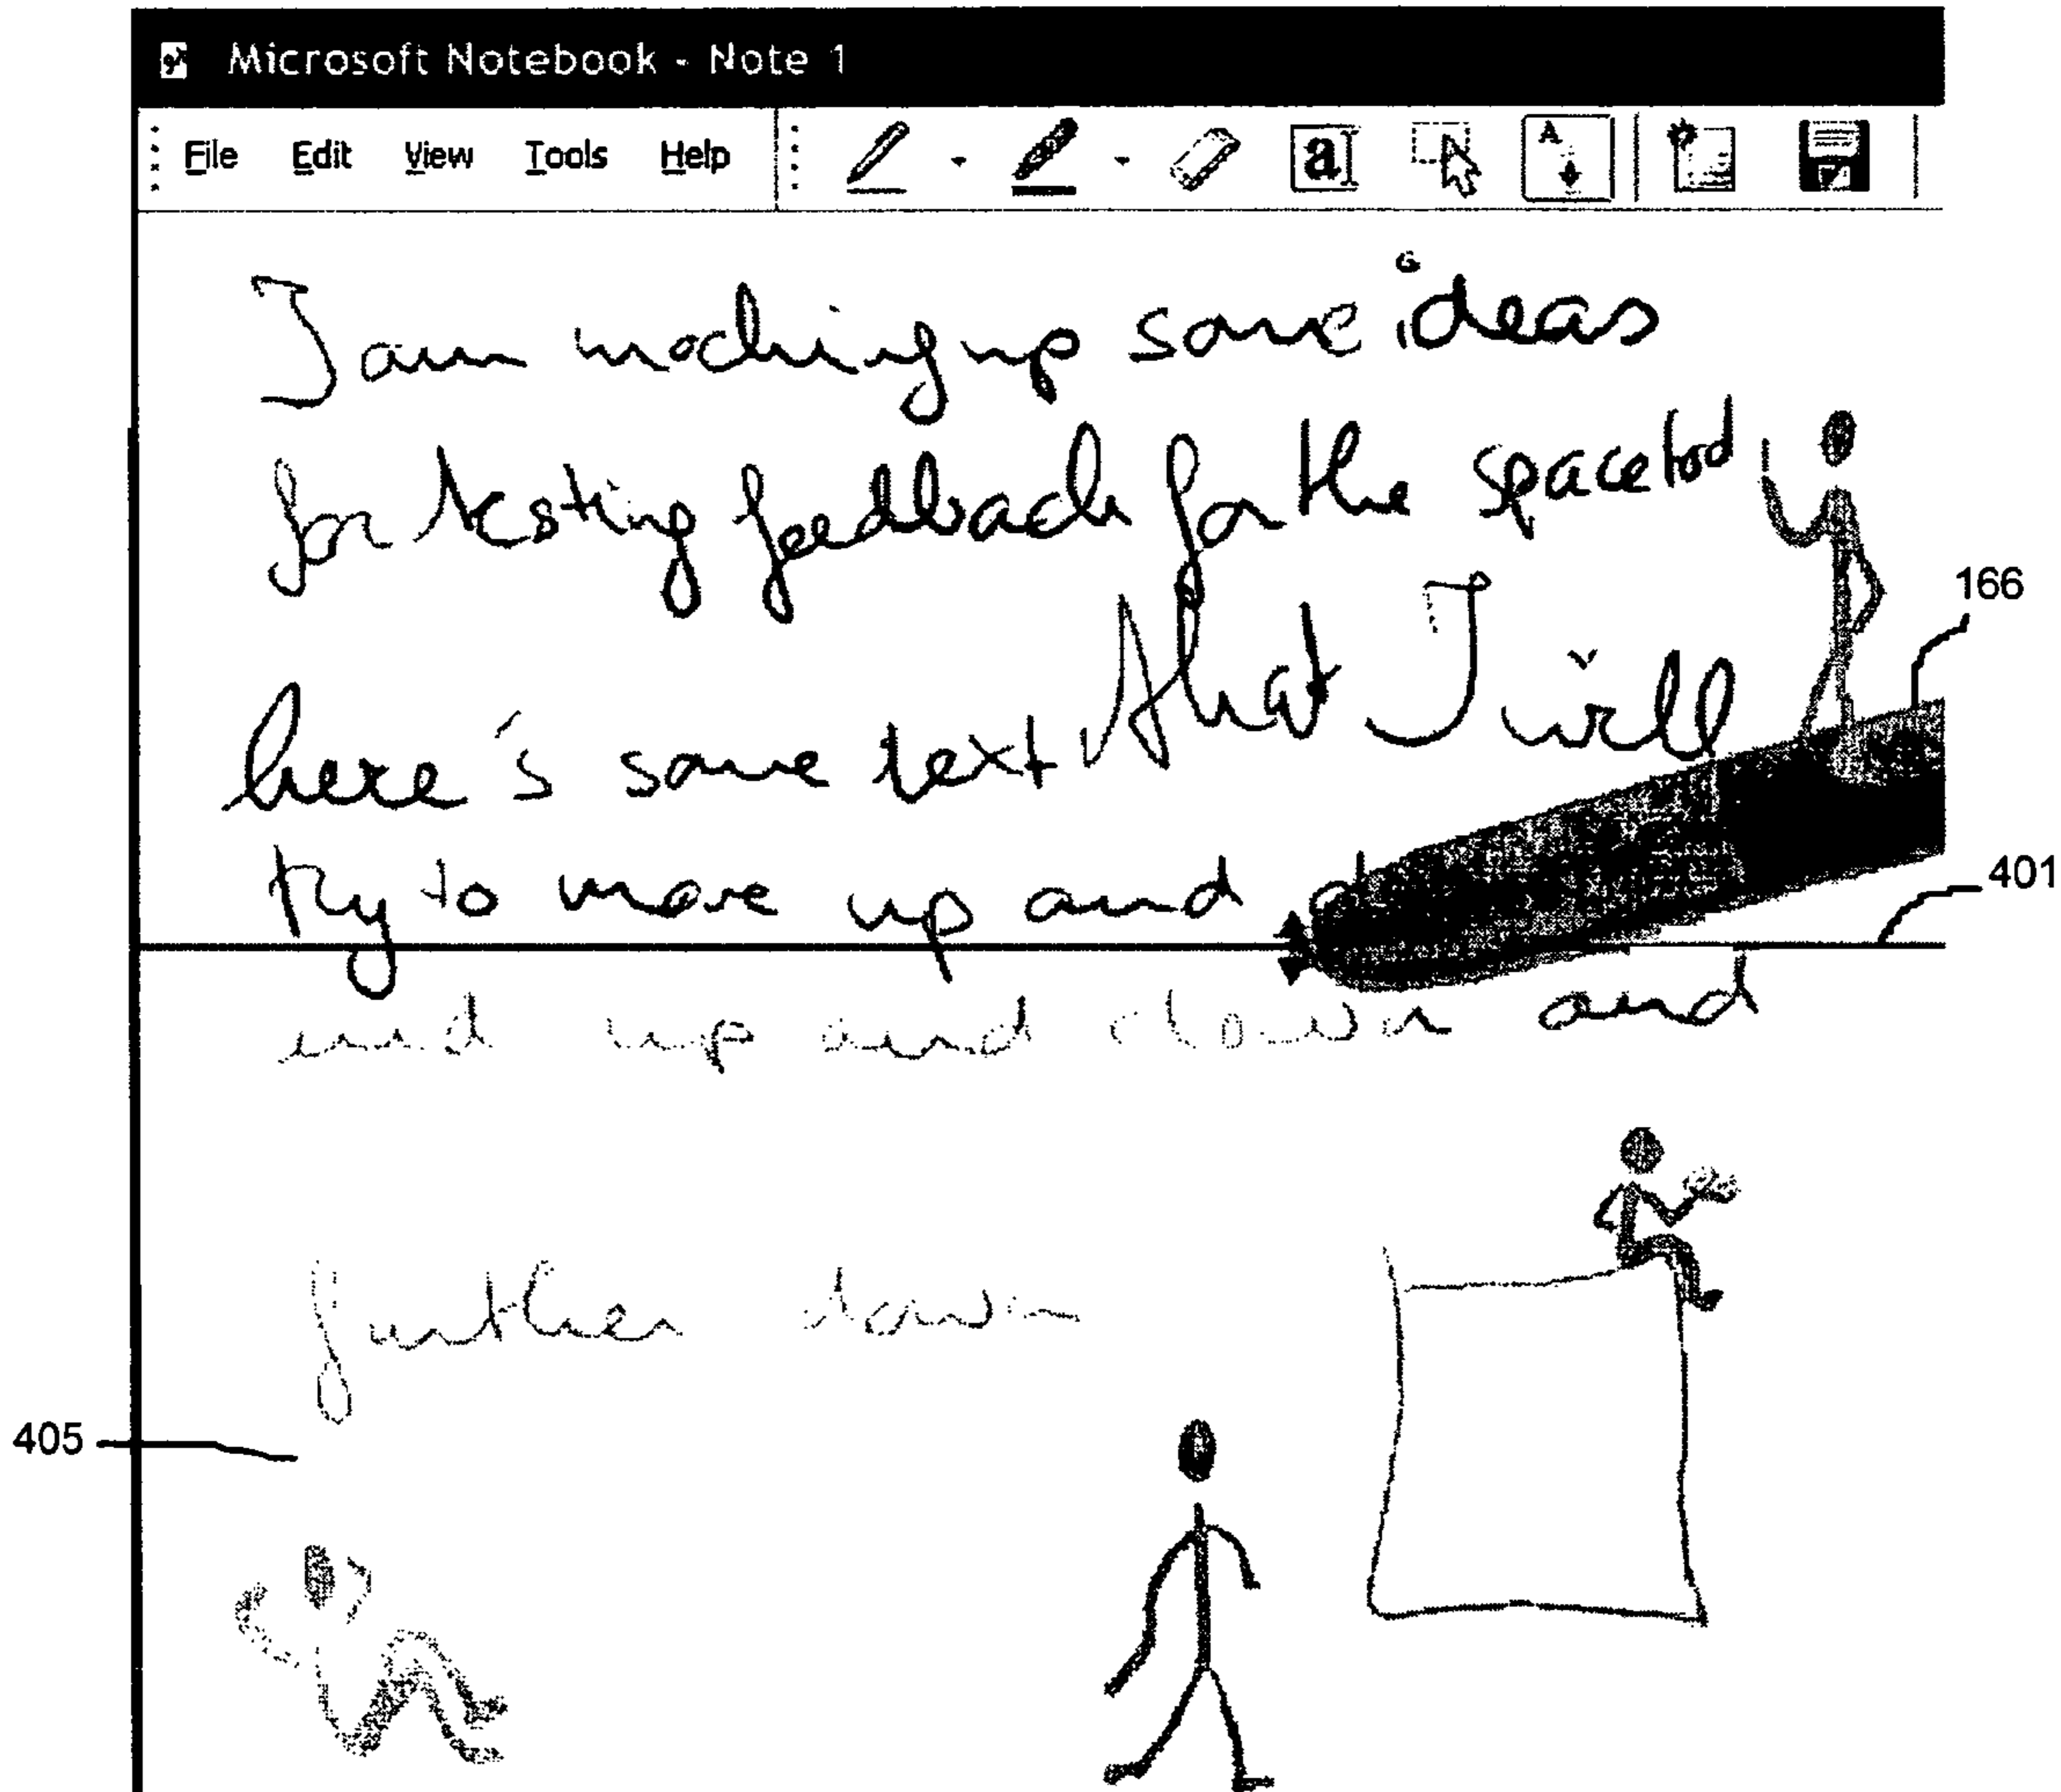 Microsoft Notebook - Note 1
File Edit View Tools Help a A
I am moching up some ideas
for testing feedback for the space tool
166
here's some text that I will
401
try to move up and d
and up and down and
further down
405